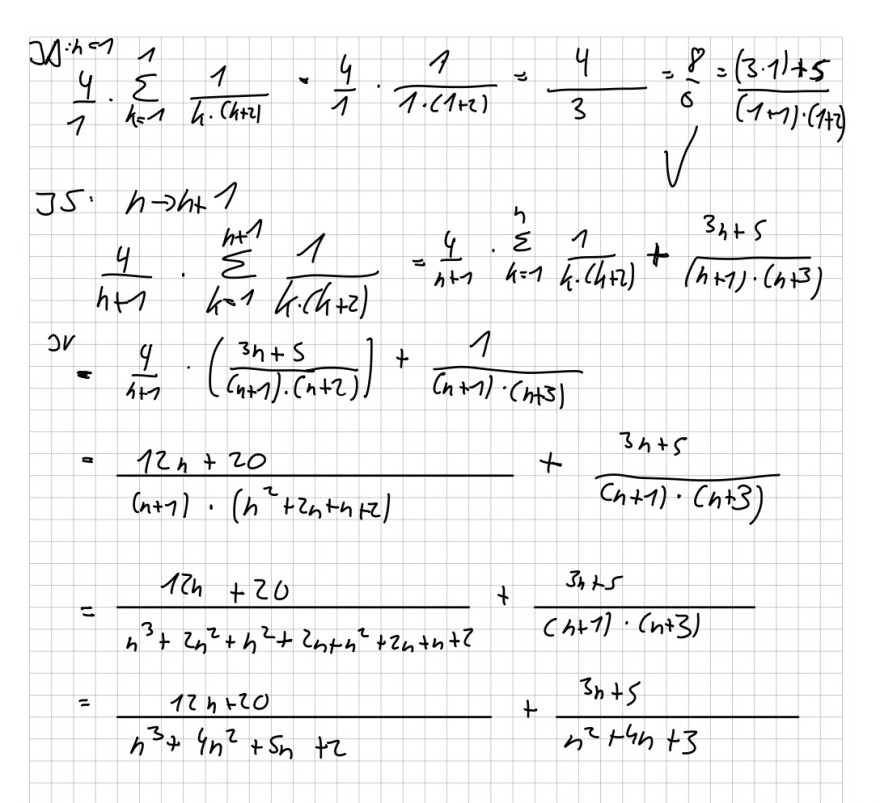 IA: n=1
4/1 · Σ_{k=1}^{1} 1/(k·(k+2)) = 4/1 · 1/(1·(1+2)) = 4/3 = 8/6 = ((3·1)+5)/((1+1)·(1+2)) √
IS: n→n+1
4/(n+1) · Σ_{k=1}^{n+1} 1/(k·(k+2)) = 4/(n+1) · Σ_{k=1}^{n} 1/(k·(k+2)) + (3n+5)/((n+1)·(n+3))
IV = 4/(n+1) · ((3n+5)/((n+1)·(n+2))) + 1/((n+1)·(n+3))
= (12n+20)/((n+1)·(n²+2n+n+2)) + (3n+5)/((n+1)·(n+3))
= (12n+20)/(n³+2n²+n²+2n+n²+2n+n+2) + (3n+5)/((n+1)·(n+3))
= (12n+20)/(n³+4n²+5n+2) + (3n+5)/(n²+4n+3)